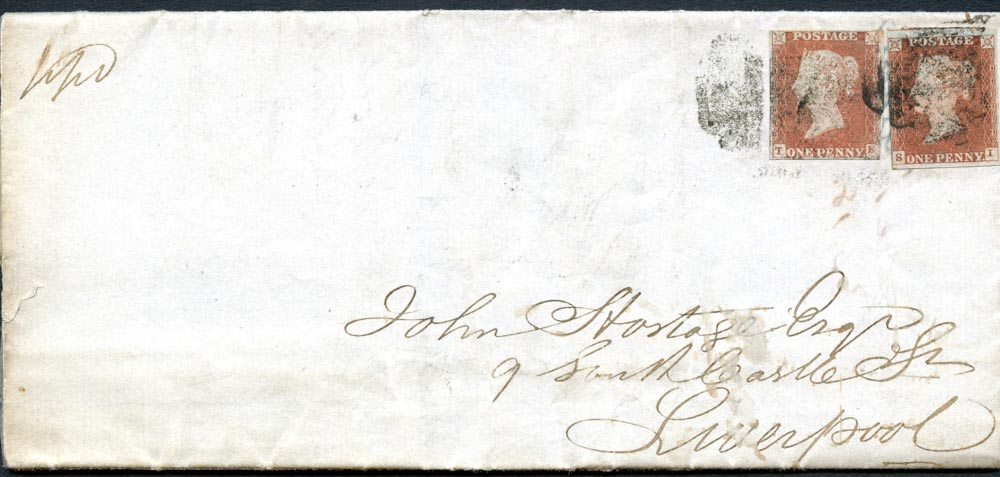 ppd
POSTAGE
T E
ONE PENNY
POSTAGE
S I
ONE PENNY
John Hostage Esqr
9 South Castle St
Liverpool